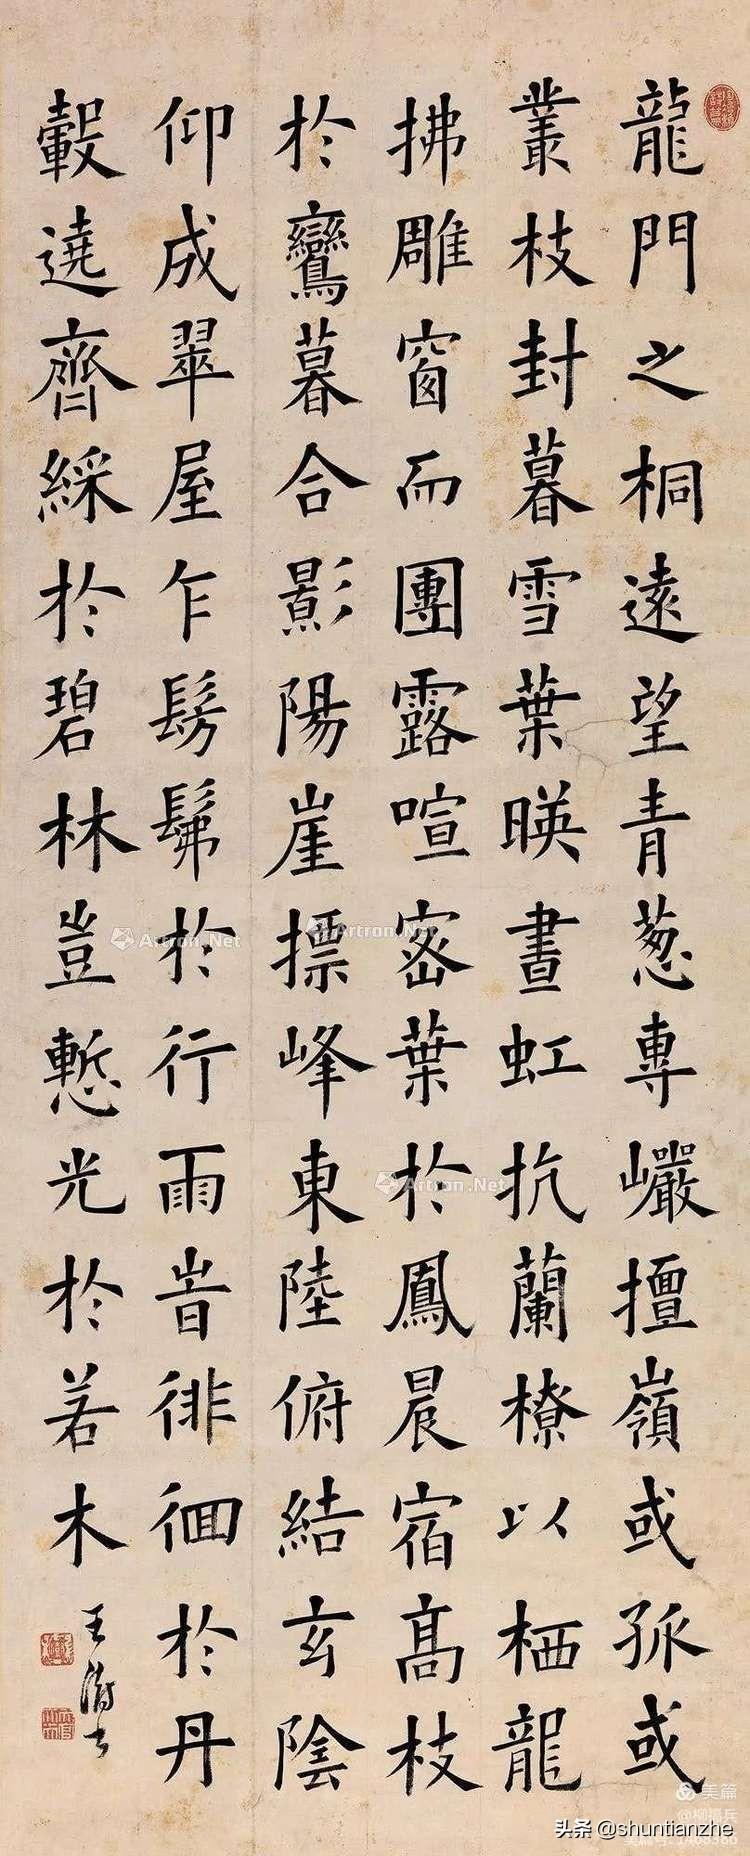 龍門之桐遠望青葱專巗擅嶺或孤或
叢枝封暮雪葉暎晝虹抗蘭橑以栖龍
拂雕窗而團露喧密葉於鳳晨宿髙枝
於鸞暮合影陽崖摽峰東陸俯結玄陰
仰成翠屋乍髣髴於行雨旹徘徊於丹
轂遶齊綵於碧林豈慙光於若木
王澍书
Artron.Net
Artron.Net
Artron.Net
美篇
@柳福兵
头条 @shuntianzhe